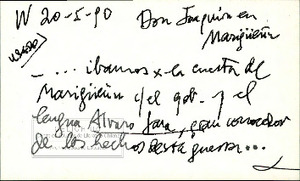 W 20-5-90 Don Joaquín en
Marigüeñu
... íbamos x-la cuesta de
Marigüeñu c/el gob. y el
lengua Álvaro Jara, gran conocedor
de los hechos desta guerra...